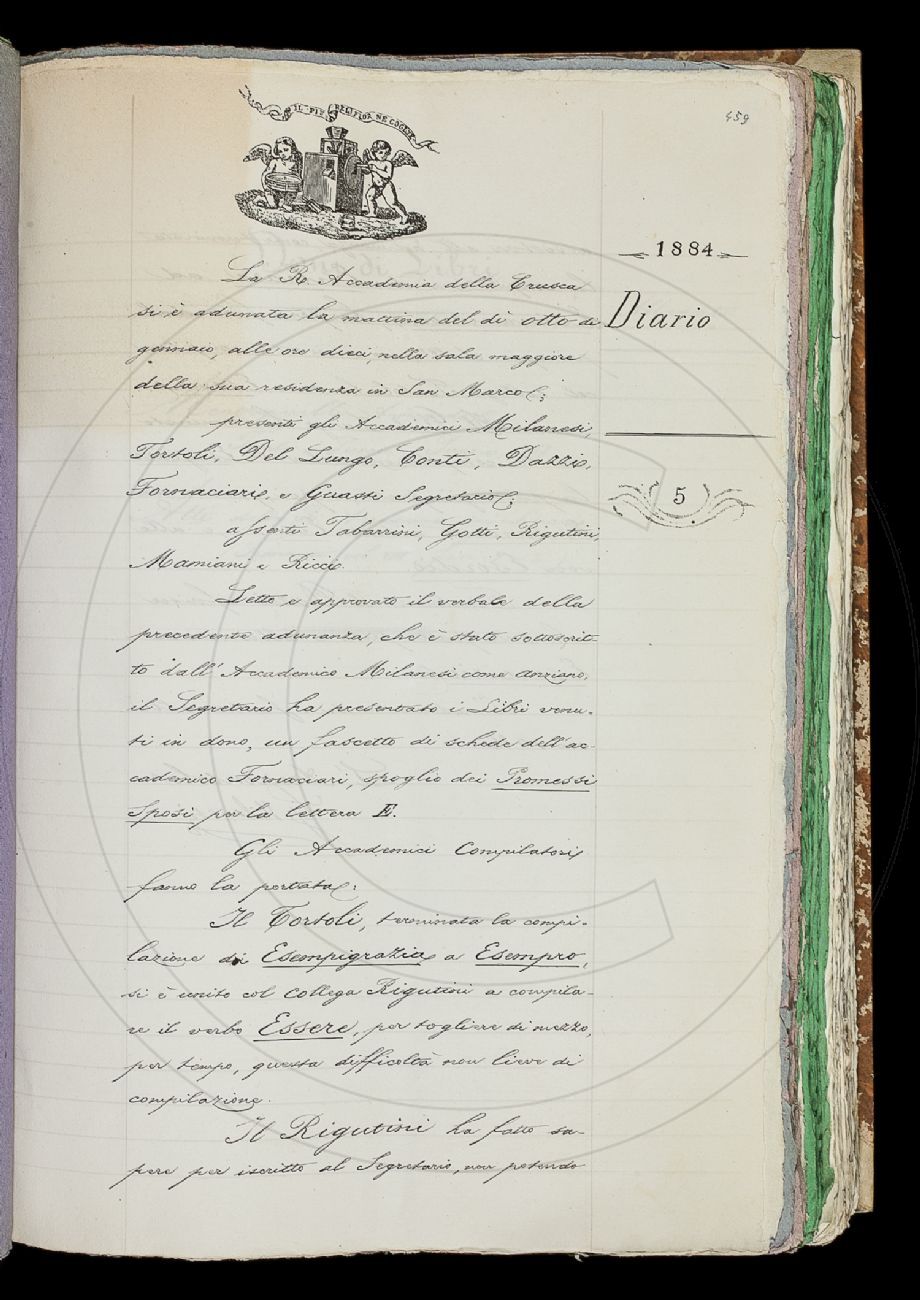 459
IL PIÙ BEL FIOR NE COGLIE
1884
Diario
5
La R. Accademia della Crusca
si è adunata la mattina del dì otto di
gennaio, alle ore dieci, nella sala maggiore
della sua residenza in San Marco;
presenti gli Accademici Milanesi,
Tortoli, Del Lungo, Conti, Dazzi,
Fornaciari, e Guasti Segretario;
assenti Tabarrini, Gotti, Rigutini,
Mamiani e Ricci.
Letto e approvato il verbale della
precedente adunanza, che è stato sottoscrit-
to dall'Accademico Milanesi come anziano,
il Segretario ha presentato i Libri venu-
ti in dono, un fascetto di schede dell'ac-
cademico Fornaciari, spoglio dei Promessi
Sposi per la lettera E.
Gli Accademici Compilatori
fanno la portata:
Il Tortoli, terminata la compi-
lazione di Esempigrazia a Esempro,
si è unito col Collega Rigutini a compila-
re il verbo Essere, per togliere di mezzo,
per tempo, questa difficoltà non lieve di
compilazione.
Il Rigutini ha fatto sa-
pere per iscritto al Segretario, non potendo